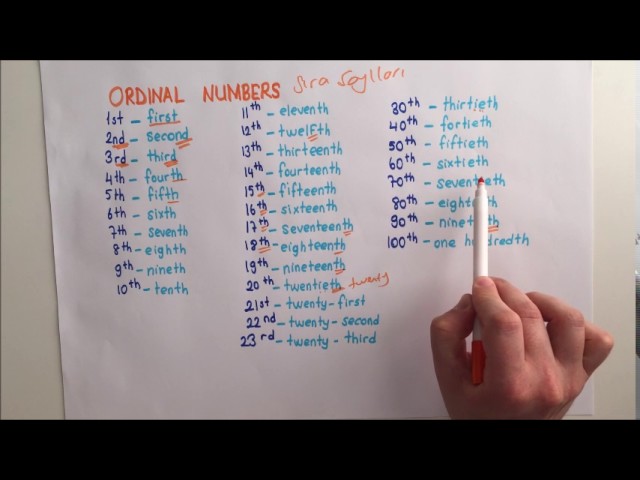 ORDINAL NUMBERS Sıra Sayıları
1st - first
2nd - second
3rd - third
4th - fourth
5th - fifth
6th - sixth
7th - seventh
8th - eighth
9th - nineth
10th - tenth
11th - eleventh
12th - twelfth
13th - thirteenth
14th - fourteenth
15th - fifteenth
16th - sixteenth
17th - seventeenth
18th - eighteenth
19th - nineteenth
20th - twentieth - twenty
21st - twenty-first
22nd - twenty-second
23rd - twenty-third
30th - thirtieth
40th - fortieth
50th - fiftieth
60th - sixtieth
70th -
80th -
90th -
100th - one